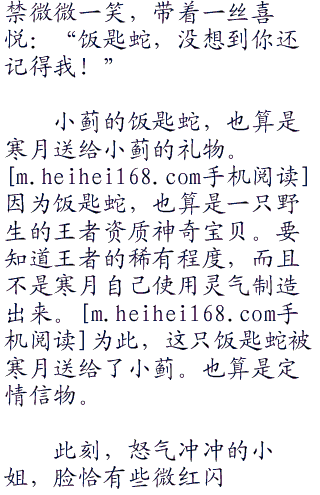 禁微微一笑，带着一丝喜
悦：“饭匙蛇，没想到你还
记得我！”
小蓟的饭匙蛇，也算是
寒月送给小蓟的礼物。
[m.heihei168.com手机阅读]
因为饭匙蛇，也算是一只野
生的王者资质神奇宝贝。要
知道王者的稀有程度，而且
不是寒月自己使用灵气制造
出来。[m.heihei168.com手
机阅读]为此，这只饭匙蛇被
寒月送给了小蓟。也算是定
情信物。
此刻，怒气冲冲的小
姐，脸恰有些微红闪